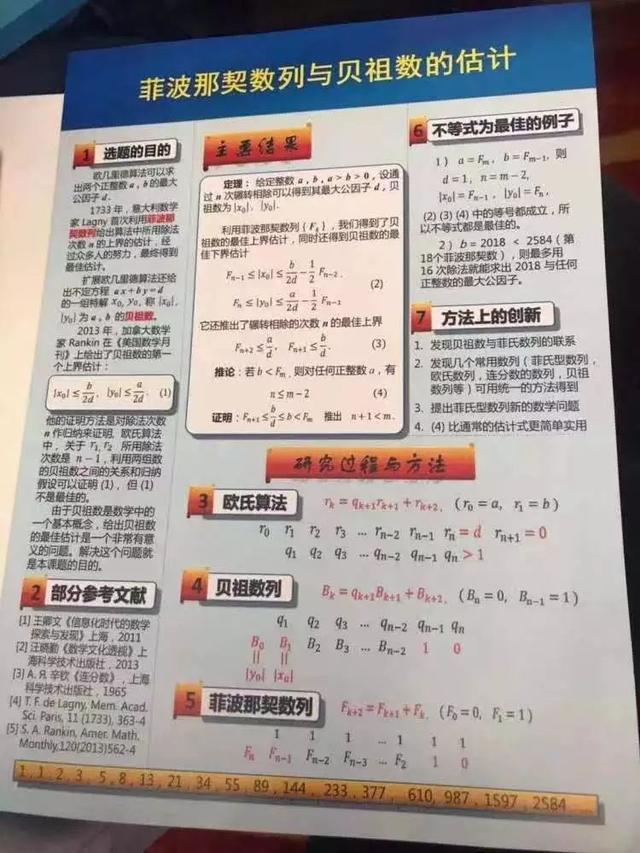 菲波那契数列与贝祖数的估计
1 选题的目的
欧几里德算法可以求
出两个正整数 a, b 的最大
公因子 d.
1733 年，意大利数学
家 Lagny 首次利用菲波那
契数列给出算法中所用除法
次数 n 的上界的估计，经
过众人的努力，最终得到
最佳估计。
扩展欧几里德算法还给
出不定方程 ax+by=d
的一组特解 x₀, y₀, 称 |x₀|,
|y₀| 为 a, b 的贝祖数。
2013 年，加拿大数学
家 Rankin 在《美国数学月
刊》上给出了贝祖数的第一
个上界估计：
|x₀| ≤ b/2d, |y₀| ≤ a/2d. (1)
他的证明方法是对除法次数
n 作归纳来证明, 欧氏算法
中，关于 r₁, r₂ 所用除法
次数是 n−1，利用两组数
的贝祖数之间的关系和归纳
假设可以证明 (1)，但 (1)
不是最佳的。
由于贝祖数是数学中的
一个基本概念，给出贝祖数
的最佳估计是一个非常有意
义的问题。解决这个问题就
是本课题的目的。
2 部分参考文献
[1] 王卿文《信息化时代的数学
探索与发现》上海，2011
[2] 汪晓勤《数学文化透视》上
海科学技术出版社，2013
[3] A. Я. 辛钦《连分数》，上海
科学技术出版社，1965
[4] T. F. de Lagny, Mem. Acad.
Sci. Paris, 11 (1733), 363-4
[5] S. A. Rankin, Amer. Math.
Monthly,120(2013)562-4
主要结果
定理：给定整数 a, b, a > b > 0，设通
过 n 次辗转相除可以得到其最大公因子 d，贝
祖数为 |x₀|, |y₀|.
利用菲波那契数列 { Fₖ }，我们得到了贝
祖数的最佳上界估计，同时还得到贝祖数的最
佳下界估计
Fₙ₋₁ ≤ |x₀| ≤ b/d − 1/2 Fₙ₋₂,
(2)
Fₙ ≤ |y₀| ≤ a/d − 1/2 Fₙ₋₂
它还推出了辗转相除的次数 n 的最佳上界
Fₙ₊₂ ≤ a/d, Fₙ₊₁ ≤ b/d. (3)
推论：若 b < Fₘ, 则对任何正整数 a，有
n ≤ m − 2 (4)
证明：Fₙ₊₁ ≤ b/d ≤ b < Fₘ 推出 n+1 < m.
6 不等式为最佳的例子
1 ) a = Fₘ, b = Fₘ₋₁, 则
d = 1, n = m − 2,
|x₀| = Fₙ₋₁, |y₀| = Fₙ,
(2) (3) (4) 中的等号都成立，所
以不等式都是最佳的。
2 ) b = 2018 < 2584（第
18个菲波那契数），则最多用
16 次除法就能求出 2018 与任何
正整数的最大公因子。
7 方法上的创新
1. 发现贝祖数与菲氏数列的联系
2. 发现几个常用数列（菲氏型数列，
欧氏数列，连分数的数列，贝祖
数列等）可用统一的方法得到
3. 提出菲氏型数列新的数学问题
4. (4) 比通常的估计式更简单实用
研究过程与方法
3 欧氏算法 rₖ = qₖ₊₁rₖ₊₁ + rₖ₊₂, ( r₀ = a, r₁ = b )
r₀ r₁ r₂ r₃ ... rₙ₋₂ rₙ₋₁ rₙ = d rₙ₊₁ = 0
q₁ q₂ q₃ ... qₙ₋₂ qₙ₋₁ qₙ > 1
4 贝祖数列 Bₖ = qₖ₊₁Bₖ₊₁ + Bₖ₊₂, ( Bₙ = 0, Bₙ₋₁ = 1 )
q₁ q₂ q₃ ... qₙ₋₂ qₙ₋₁ qₙ
B₀ B₁ B₂ B₃ ... Bₙ₋₂ 1 0
|| ||
|y₀| |x₀|
5 菲波那契数列 Fₖ₊₂ = Fₖ₊₁ + Fₖ, ( F₀ = 0, F₁ = 1 )
1 1 1 ... 1 1 1
Fₙ Fₙ₋₁ Fₙ₋₂ Fₙ₋₃ ... F₂ 1 0
1, 1, 2, 3, 5, 8, 13, 21, 34, 55, 89, 144, 233, 377, 610, 987, 1597, 2584